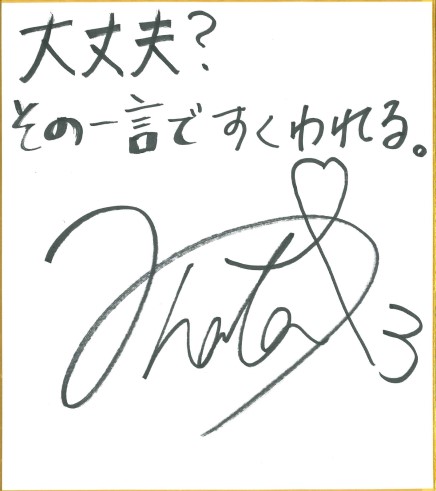 大丈夫?
その一言ですくわれる。
3